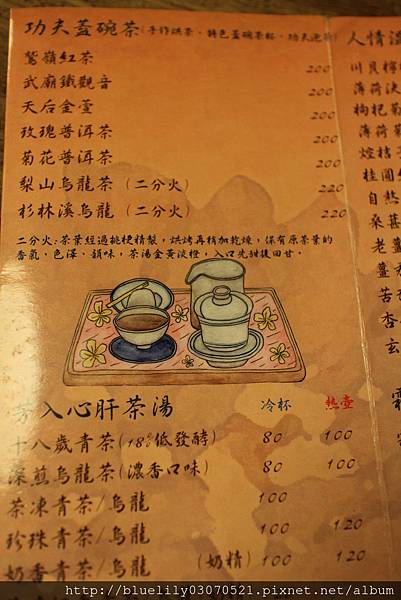 功夫蓋碗茶(手作烘茶、特色蓋碗茶杯、功夫泡
鷲嶺紅茶 200
武廟鐵觀音 200
天后金萱 200
玫瑰普洱茶 200
菊花普洱茶 200
梨山烏龍茶(二分火) 220
杉林溪烏龍(二分火) 220
二分火:茶葉經過挑梗精製,烘烤再精加乾燥,保有原茶葉的
香氣、色澤、韻味,茶湯金黃淡橙,入口先甜後回甘。
入心肝茶湯 冷杯 熱壺
十八歲青茶(18%低發酵) 80 100
深煎烏龍茶(濃香口味) 80 100
茶凍青茶/烏龍 100
珍珠青茶/烏龍 100 120
奶香青茶/烏龍 (奶精) 100 120
人情
川貝檸
薄荷決
枸杞菊
薄荷
桂圓
自然
桑葚
老薑
薑
苦
杏
玄
http://bluelily03070521.pixnet.net/album